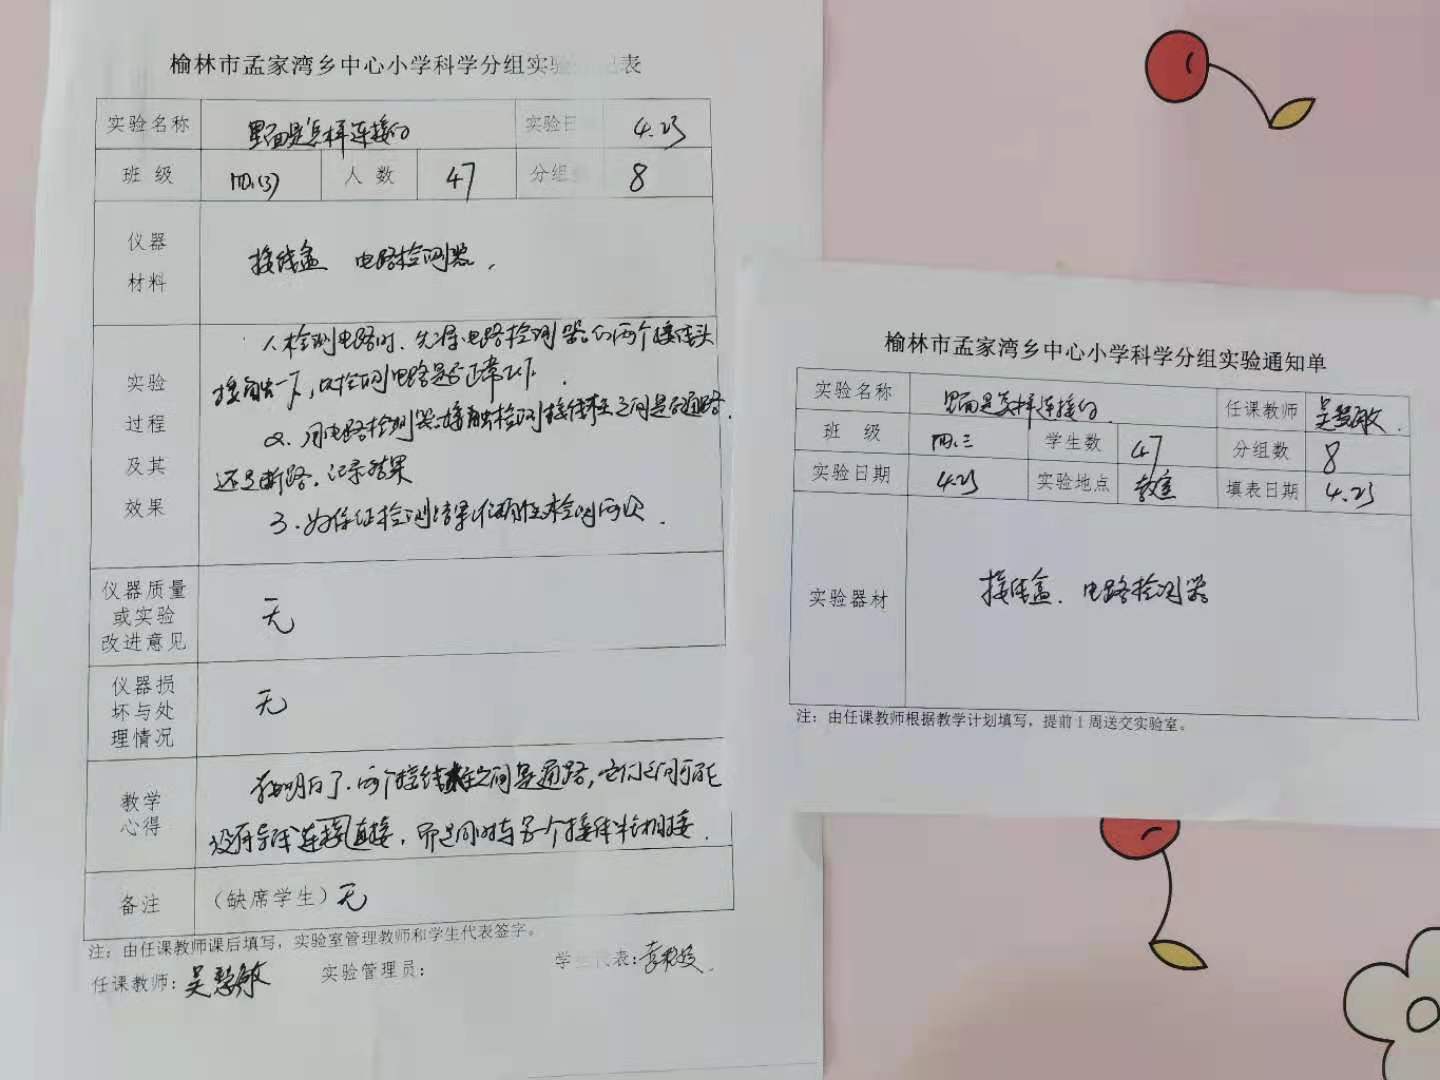 榆林市孟家湾乡中心小学科学分组实验记表
实验名称 里面是怎样连接的 实验日 4.23
班 级 四.(3) 人 数 47 分组数 8
仪器
材料
接线盒 电路检测器,
实验
过程
及其
效果
1.检测电路时、先将电路检测器的两个接线头
接触一下,以检测电路是否正常工作.
2、用电路检测器接触检测接线柱之间是否通路.
还是断路.记录结果
3.为保证检测结果准确性检测两次.
仪器质量
或实验
改进意见
无
仪器损
坏与处
理情况
无
教学
心得
明白了.两个接线柱之间是通路,它们之间可能
没有导线连接直接,而是同时与另一个接线柱相接.
备注 (缺席学生)无
注:由任课教师课后填写,实验室管理教师和学生代表签字。
任课教师:吴慧敏 实验管理员: 学生代表:
榆林市孟家湾乡中心小学科学分组实验通知单
实验名称 里面是怎样连接的 任课教师 吴慧敏.
班 级 四.三 学生数 47 分组数 8
实验日期 4.23 实验地点 教室 填表日期 4.23
实验器材 接线盒、电路检测器
注:由任课教师根据教学计划填写,提前1周送交实验室。